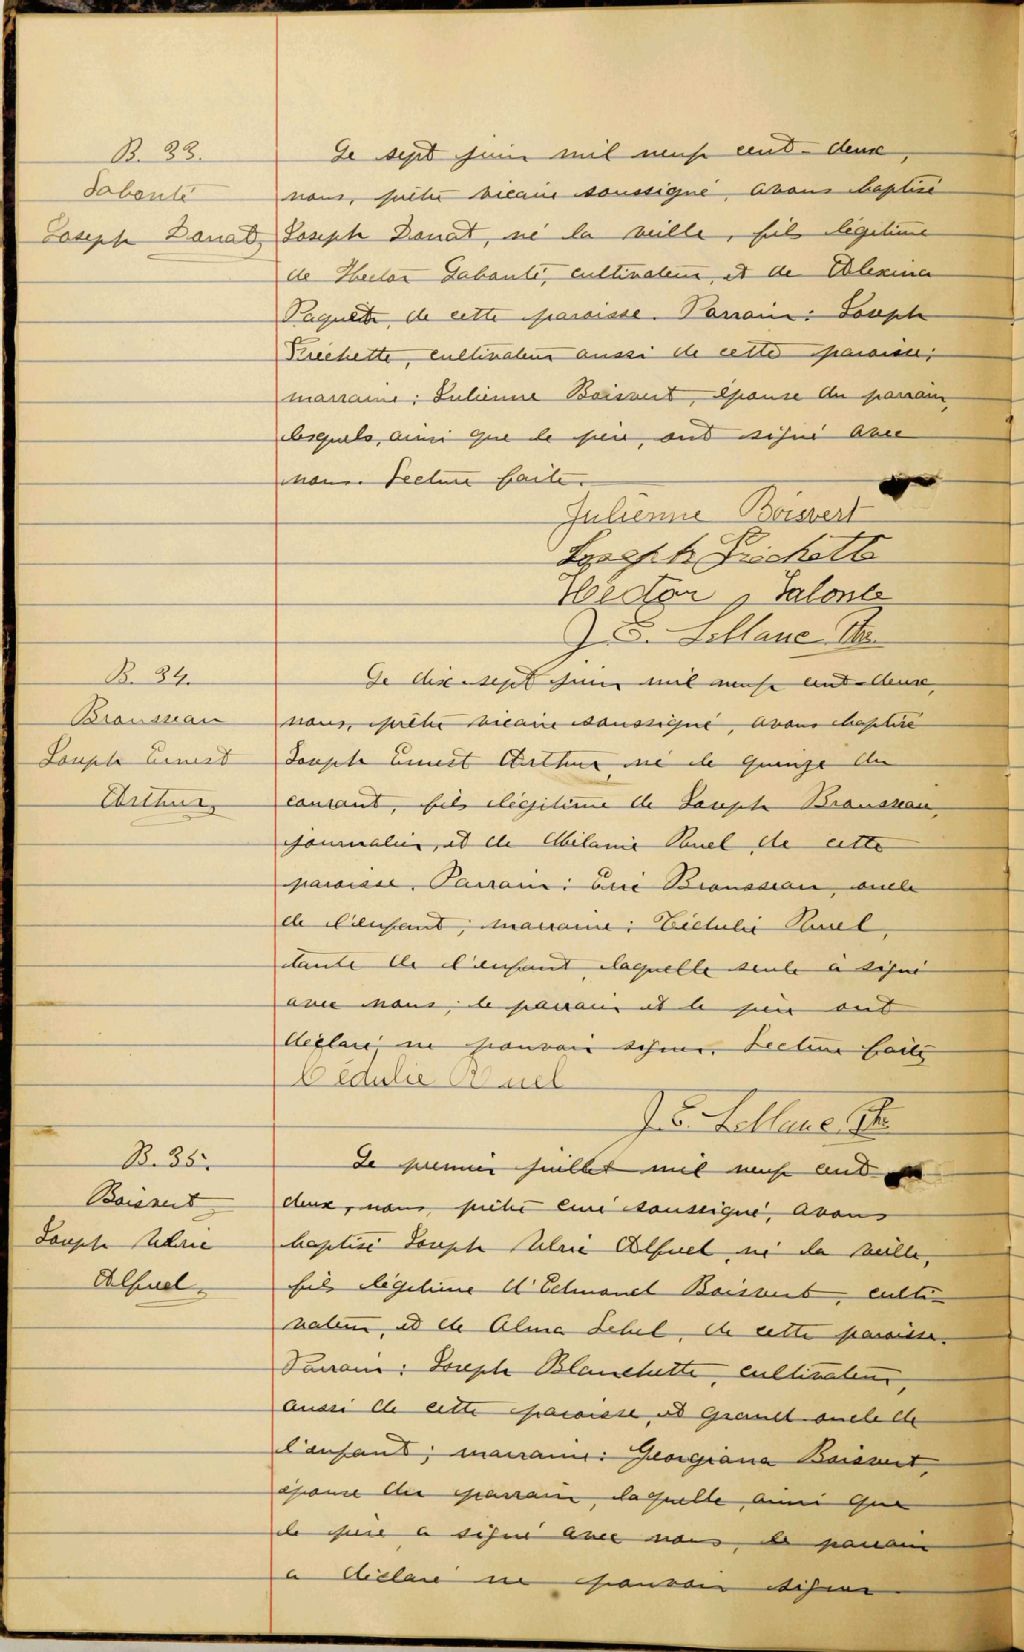 B. 33.
Labonté
Joseph Donat
Le sept juin mil neuf cent-deux,
nous, prêtre vicaire soussigné, avons baptisé
Joseph Donat, né la veille, fils légitime
de Hector Labonté, cultivateur, et de Alexina
Paquet, de cette paroisse. Parrain: Joseph
Fréchette, cultivateur aussi de cette paroisse;
marraine: Julienne Boisvert, épouse du parrain,
lesquels, ainsi que le père, ont signé avec
nous. Lecture faite.
Julienne Boisvert
Joseph Fréchette
Hector Labonte
J. E. LeBlanc Ptre.
B. 34.
Brousseau
Joseph Ernest
Arthur
Le dix-sept juin mil neuf cent-deux,
nous, prêtre vicaire soussigné, avons baptisé
Joseph Ernest Arthur, né le quinze du
courant, fils légitime de Joseph Brousseau,
journalier, et de Mélanie Ruel, de cette
paroisse. Parrain: Brousseau, oncle
de l'enfant; marraine: Cédulie Ruel,
tante de l'enfant, laquelle seule a signé
avec nous; le parrain et le père ont
déclaré ne pouvoir signer. Lecture faite
Cédulie Ruel
J. E. LeBlanc Ptre.
B. 35.
Boisvert
Joseph Ulric
Alfred
Le premier juillet mil neuf cent
deux, nous, prêtre curé soussigné, avons
baptisé Joseph Ulric Alfred, né la veille,
fils légitime d'Edmond Boisvert, culti-
vateur, et de Alma Lebel, de cette paroisse.
Parrain: Joseph Blanchette, cultivateur,
aussi de cette paroisse, et grand-oncle de
l'enfant; marraine: Georgiana Boisvert,
épouse du parrain, laquelle, ainsi que
le père a signé avec nous, le parrain
a déclaré ne pouvoir signer